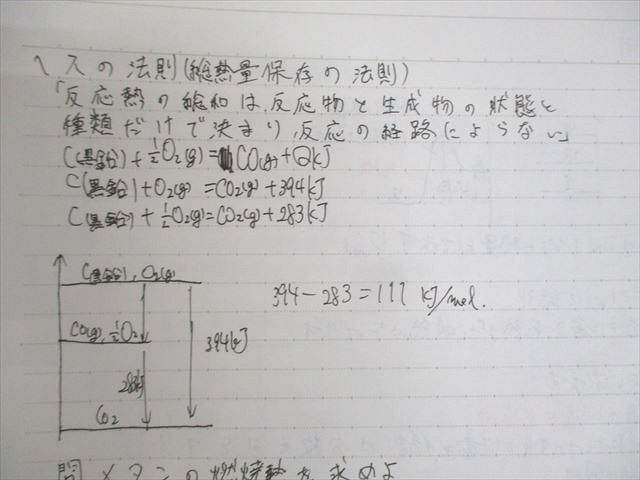 ヘスの法則(総熱量保存の法則)
「反応熱の総和は、反応物と生成物の状態と
種類だけで決まり、反応の経路によらない」
C(黒鉛)+½O₂(g)=CO(g)+QkJ
C(黒鉛)+O₂(g)=CO₂(g)+394kJ
C(黒鉛)+½O₂(g)=CO₂(g)+283kJ
C(黒鉛), O₂(g)
394-283=111 kJ/mol.
CO(g), ½O₂
394kJ
283kJ
CO₂
問 メタンの燃焼熱を求めよ